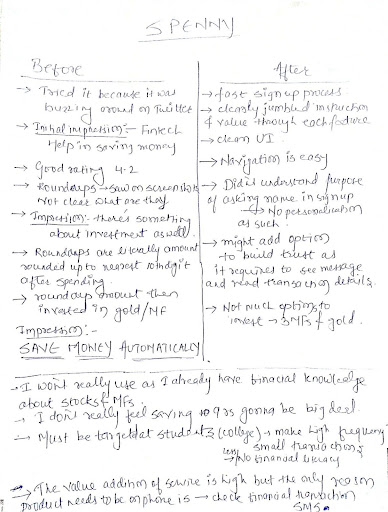 SPENNY
Before
→ Tried it because it was
buzzing around on Twitter
→ Initial impression:- Fintech
Help in saving money
→ Good rating 4.2
→ Roundups → saw on screenshots
Not clear what are they
→ Impression:- there's something
about investment as well.
→ Roundups are literally amount
rounded up to nearest 10th digit
after spending.
→ roundup amount then
invested in gold/MF
Impression:-
SAVE MONEY AUTOMATICALLY
After
→ fast sign up process
→ clearly jumbled instruction
& value though each feature
→ clean UI
→ Navigation is easy
→ Didn't understand purpose
of asking name in signup
↳ No personalisation
as such.
→ might add option
to build trust as
it requires to see message
and read transaction details.
→ Not much options to
invest → 3 MFs & gold.
→ I wont really use as I already have financial knowledge
about stocks & MFs.
→ I don't really feel saving is gonna be big deal.
→ Must be target at students (college) → make high frequency
small transactions
→ No financial literacy
→ The value addition of service is high but the only reason
Product needs to be on phone is → check financial transaction
SMS.